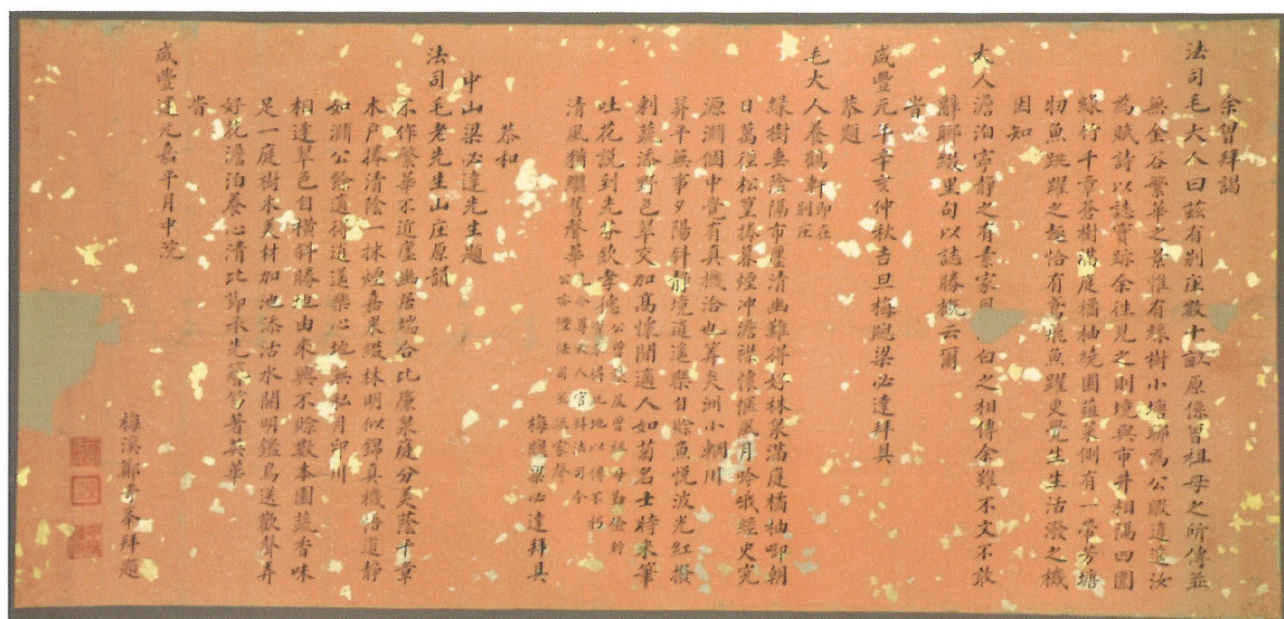 余曾拜謁
法司毛大人曰茲有別庄數十畝原係曾祖母之所傳並
無金谷繁華之景惟有綠樹小塘聊為公暇逍遙汝
為賦詩以誌實跡余往見之則境與市井相隔四圍
綠竹千章蒼樹滿庭橘柚繞園蔬菜側有一帶芳塘
物魚跳躍之趣恰有鳶飛魚躍更覺生生活潑之機
因知
大人澹泊寧靜之有素家 白之相傳余雖不文不敢
辭聊綴里句以誌勝概云爾
旹
咸豐元年辛亥仲秋吉旦梅牕梁必達拜具
恭題
毛大人養鶴軒即在別庄
綠樹垂陰隔市廛清幽難得好林泉滿庭橘柚啣朝
日萬徑松篁捧暮煙冲澹襟懷偃風月吟哦經史究
源淵個中覺有真機洽也筭炎洲小輞川
昇平無事夕陽斜靜境逍遙樂自賒魚悅波光紅撥
剌蔬添野色翠交加高懷閒適人如菊名士時來筆
吐花說到先芬欽孝德公曾 及曾祖母勤儉貯 得此地以傳不朽
清風猶繼舊聲華 令尊大人官拜法司今公亦陞法司 家聲
梅牕梁必達拜具
恭和
中山梁必達先生題
法司毛老先生山庄原韻
不作繁華不近廛幽居端合比廉泉庭分美蔭千章
木戶捧清陰一抹煙嘉果綴林明似錦真機悟道靜
如淵公餘適得逍遙樂心地無私月印川
相逢翠色自橫斜勝地由來興不賒數本園蔬香味
足一庭樹木美材加池添活水開明鑑鳥送歡聲弄
好花澹泊養心清比節承先纂笏著英華
旹
咸豐建元嘉平月中浣
梅溪鄭 拜題